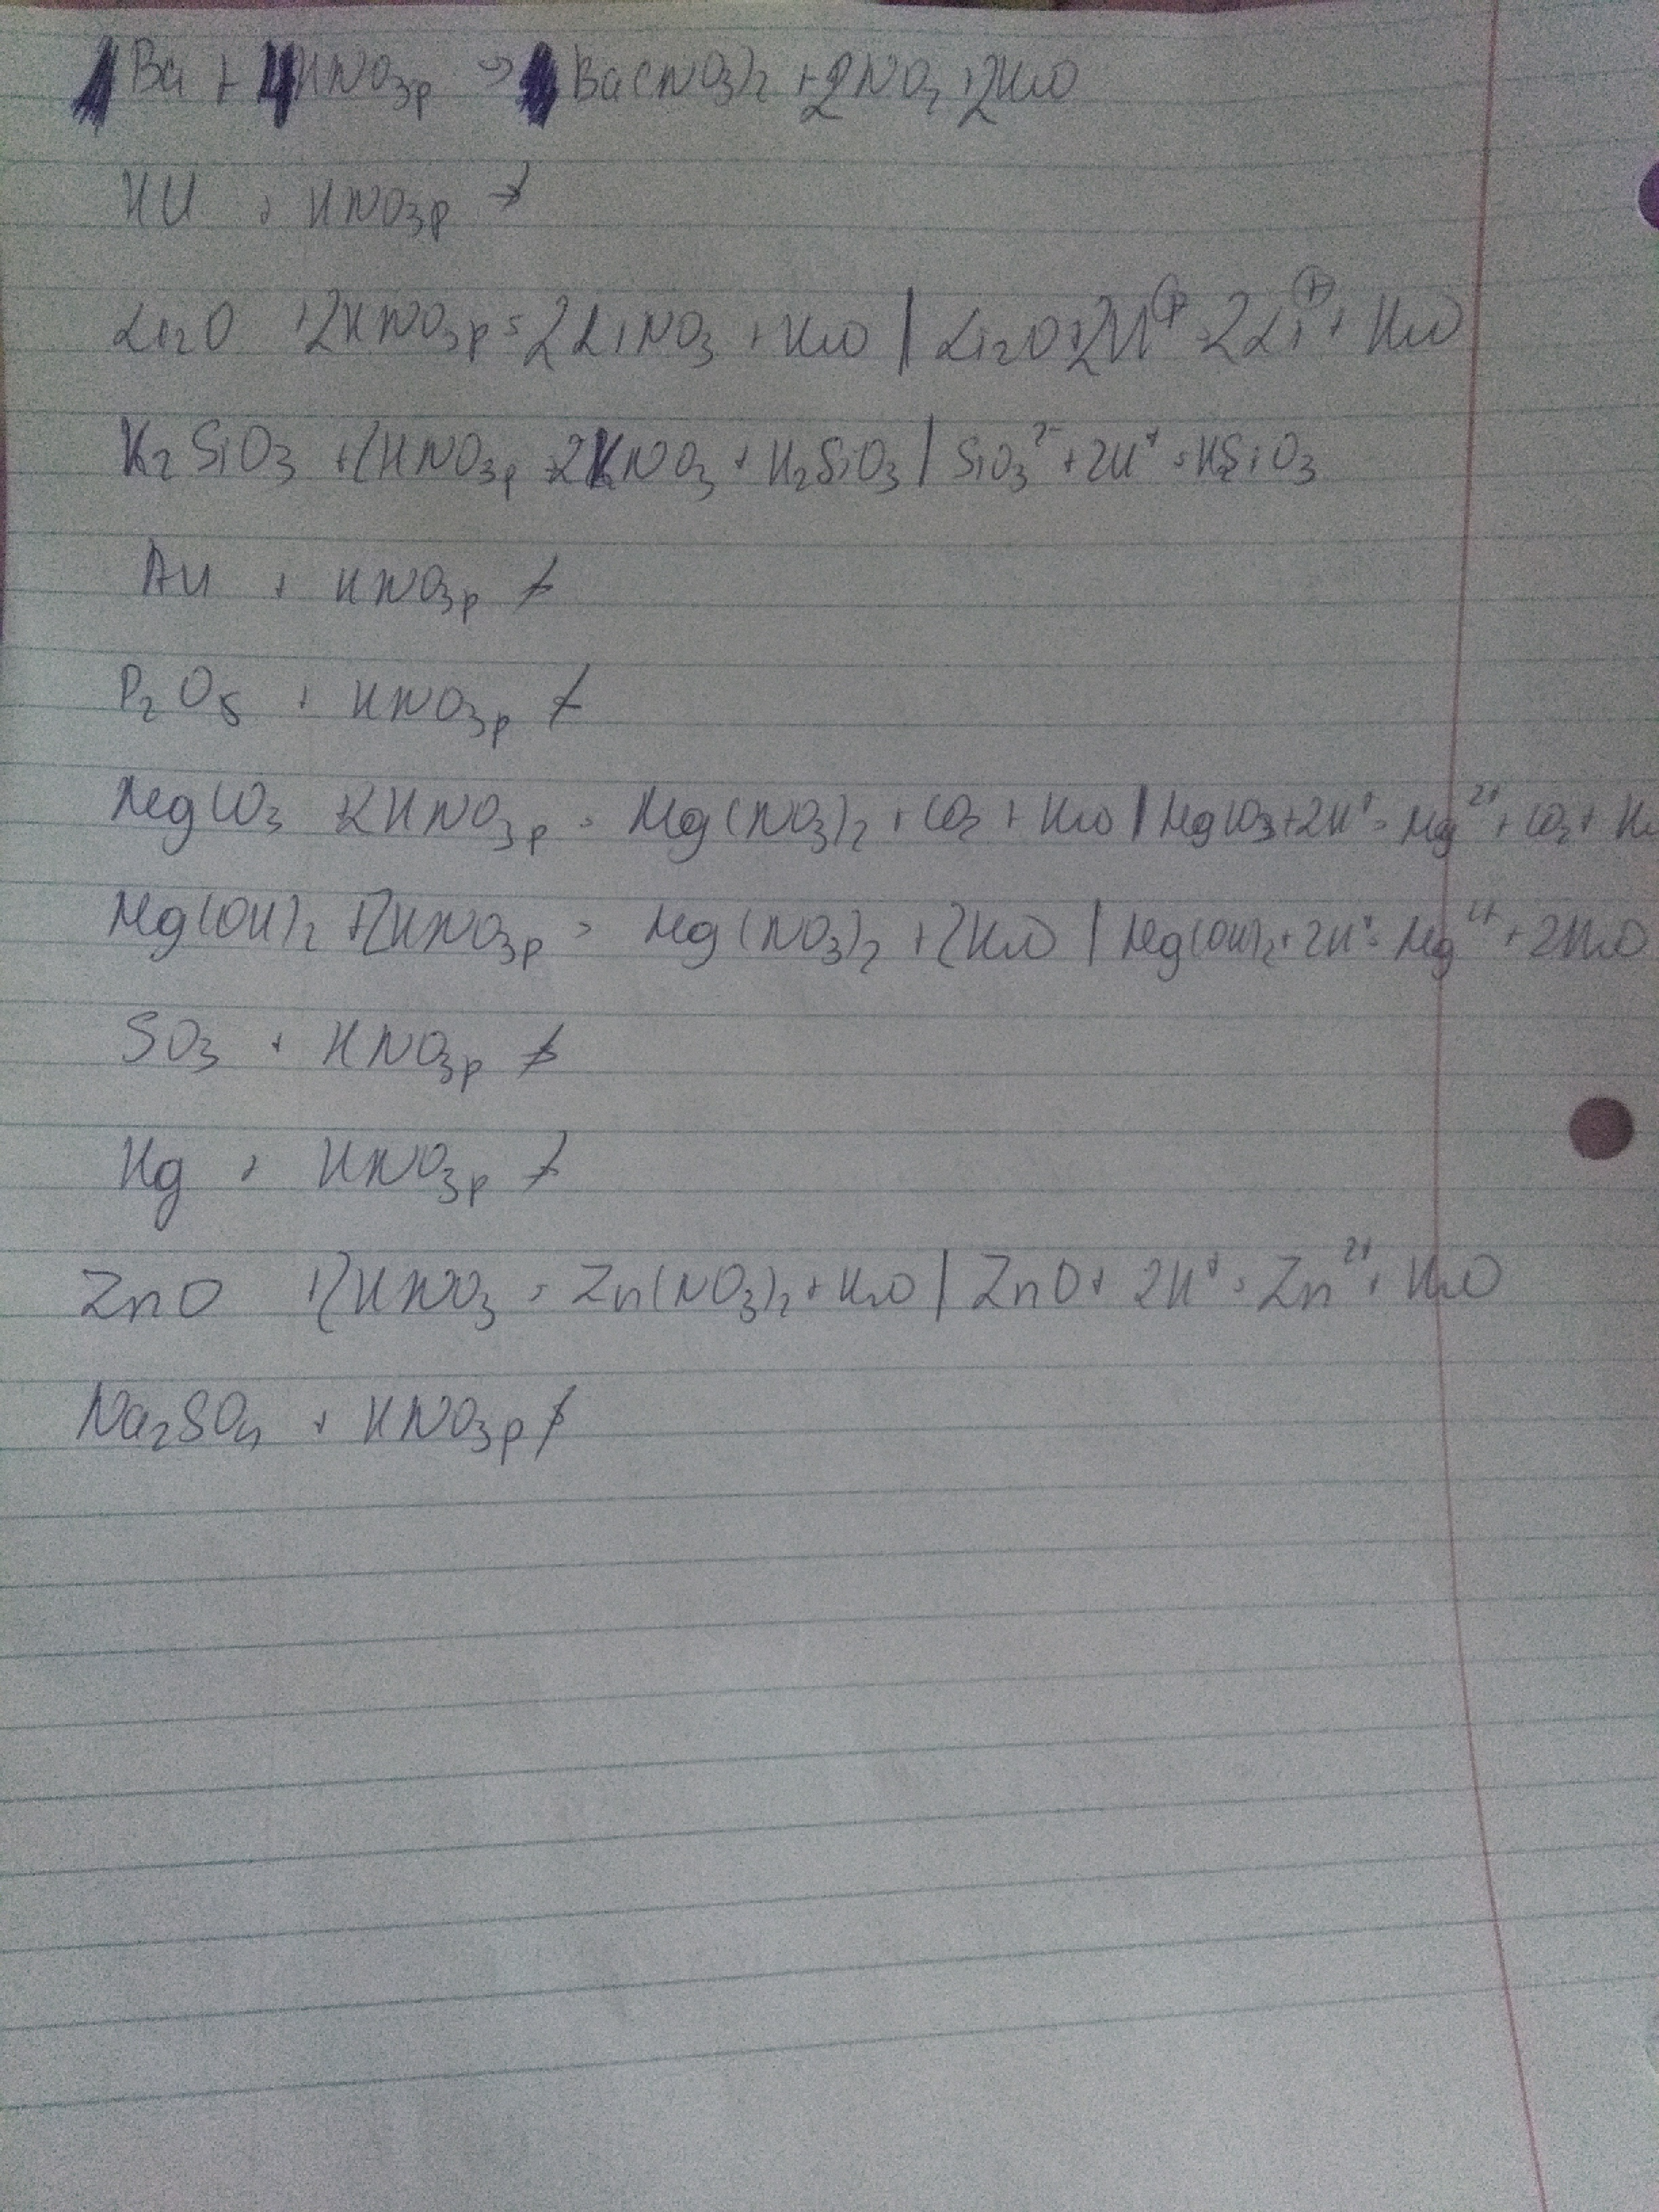 1Ba + 4HNO3p → Ba(NO3)2 + 2NO2 + 2H2O
HCl + HNO3p ↛
Li2O + 2HNO3p = 2LiNO3 + H2O | Li2O + 2H⁺ = 2Li⁺ + H2O
K2SiO3 + 2HNO3p = 2KNO3 + H2SiO3 | SiO3²⁻ + 2H⁺ = H2SiO3
Au + HNO3p ≠
P2O5 + HNO3p ≠
MgCO3 + 2HNO3p = Mg(NO3)2 + CO2 + H2O | MgCO3 + 2H⁺ = Mg²⁺ + CO2 + H2O
Mg(OH)2 + 2HNO3p = Mg(NO3)2 + 2H2O | Mg(OH)2 + 2H⁺ = Mg²⁺ + 2H2O
SO3 + HNO3p ≠
Hg + HNO3p ≠
ZnO + 2HNO3 = Zn(NO3)2 + H2O | ZnO + 2H⁺ = Zn²⁺ + H2O
Na2SO4 + HNO3p ≠